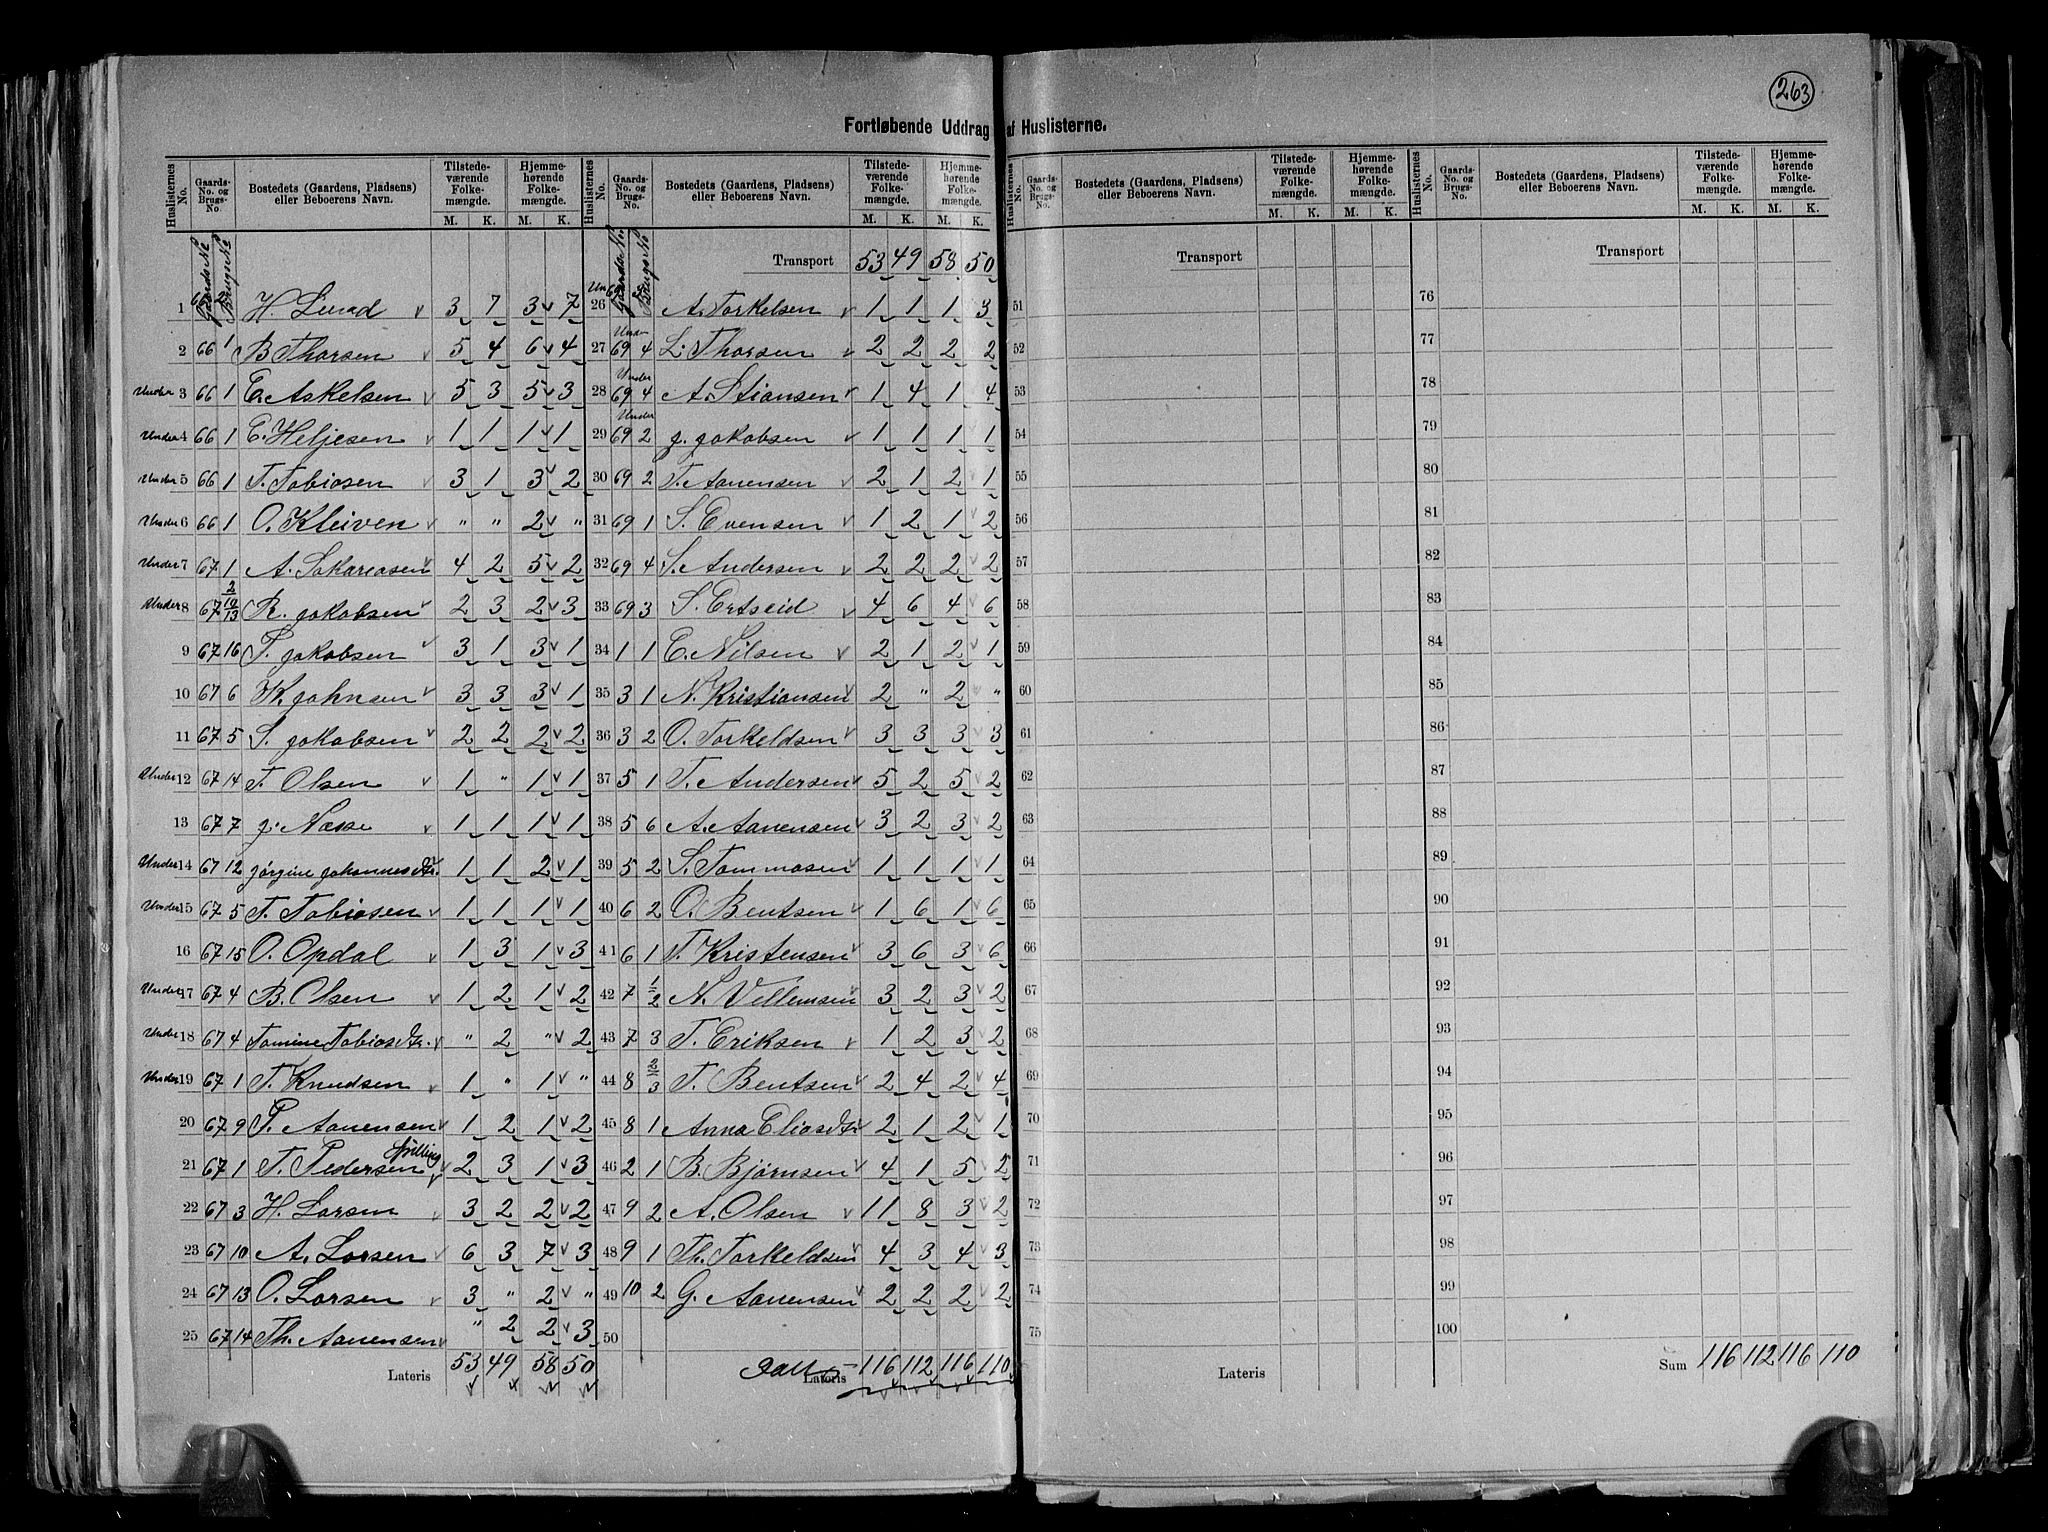 263
Fortløbende Uddrag af Huslisterne.
Huslisternes No. Gaards-No. og Brugs-No. Bostedets (Gaardens, Pladsens) eller Beboerens Navn. Tilstede-værende Folke-mængde. M. K. Hjemme-hørende Folke-mængde. M. K.
Gaards No Brugs No
1 H. Lund 3 7 3 7
2 66 1 B Thorsen 5 4 6 4
Under 3 66 1 E. Askelsen 5 3 5 3
Under 4 66 1 E. Heljesen 1 1 1 1
Under 5 66 1 T. Tobiasen 3 1 3 2
Under 6 66 1 O. Kleiven " " 2 "
Under 7 67 1 A. Sakariasen 4 2 5 2
Under 8 67 2/10/13 R. Jakobsen 2 3 2 3
9 67 16 P. Jakobsen 3 1 3 1
10 67 6 K. Johnsen 3 3 3 1
11 67 5 S. Jakobsen 2 2 2 2
Under 12 67 14 T. Olsen 1 " 1 1
13 67 7 J. Næse 1 1 1 1
Under 14 67 12 Jørgine Johannesdtr. 1 1 2 1
Under 15 67 5 T. Tobiasen 1 1 1 1
16 67 15 O. Opdal 1 3 1 3
Under 17 67 4 B. Olsen 1 2 1 2
Under 18 67 4 Tomine Tobiasdtr. " 2 " 2
Under 19 67 1 T. Knudsen 1 " 1 "
20 67 9 P. Aanensen 1 2 1 2
21 67 1 T. Pedersen 2 3 1 3
22 67 3 H. Larsen 3 2 2 2
23 67 10 A. Larsen 6 3 7 3
24 67 13 O. Larsen 3 " 2 "
25 67 14 Th. Aanensen " 2 2 3
Lateris 53 49 58 50
Huslisternes No. Gaards-No. og Brugs-No. Bostedets (Gaardens, Pladsens) eller Beboerens Navn. Tilstede-værende Folke-mængde. M. K. Hjemme-hørende Folke-mængde. M. K.
Gaards No Brugs No
Transport 53 49 58 50
26 A. Torkelsen 1 1 1 3
Under
27 69 4 L. Thorsen 2 2 2 2
Under
28 69 4 A. Stiansen 1 4 1 4
Under
29 69 2 J. Jakobsen 1 1 1 1
30 69 2 T. Aanensen 2 1 2 1
31 69 1 S. Evensen 1 2 1 2
32 69 4 S. Andersen 2 2 2 2
33 69 3 S. Ertseid 4 6 4 6
34 1 1 E. Nilsen 2 1 2 1
35 3 1 N. Kristiansen 2 " 2 "
36 3 2 O. Torkeldsen 3 3 3 3
37 5 1 T. Andersen 5 2 5 2
38 5 6 A. Aanensen 3 2 3 2
39 5 2 S. Tommasen 1 1 1 1
40 6 2 O. Bentsen 1 6 1 6
41 6 1 T. Kristensen 3 6 3 6
42 7 1/2 N. Villemsen 3 2 3 2
43 7 3 T. Eriksen 1 2 3 2
44 8 2/3 T. Bentsen 2 4 2 4
45 8 1 Anna Eliasdtr 2 1 2 1
46 2 1 B. Bjørnsen 4 1 5 2
47 9 2 A. Olsen 11 8 3 2
48 9 1 Th. Torkeldsen 4 3 4 3
49 10 2 G. Aanensen 2 2 2 2
50
Ialt Lateris 116 112 116 110
Huslisternes No. Gaards-No. og Brugs-No. Bostedets (Gaardens, Pladsens) eller Beboerens Navn. Tilstede-værende Folke-mængde. M. K. Hjemme-hørende Folke-mængde. M. K.
Transport
51
52
53
54
55
56
57
58
59
60
61
62
63
64
65
66
67
68
69
70
71
72
73
74
75
Lateris
Huslisternes No. Gaards-No. og Brugs-No. Bostedets (Gaardens, Pladsens) eller Beboerens Navn. Tilstede-værende Folke-mængde. M. K. Hjemme-hørende Folke-mængde. M. K.
Transport
76
77
78
79
80
81
82
83
84
85
86
87
88
89
90
91
92
93
94
95
96
97
98
99
100
Sum 116 112 116 110